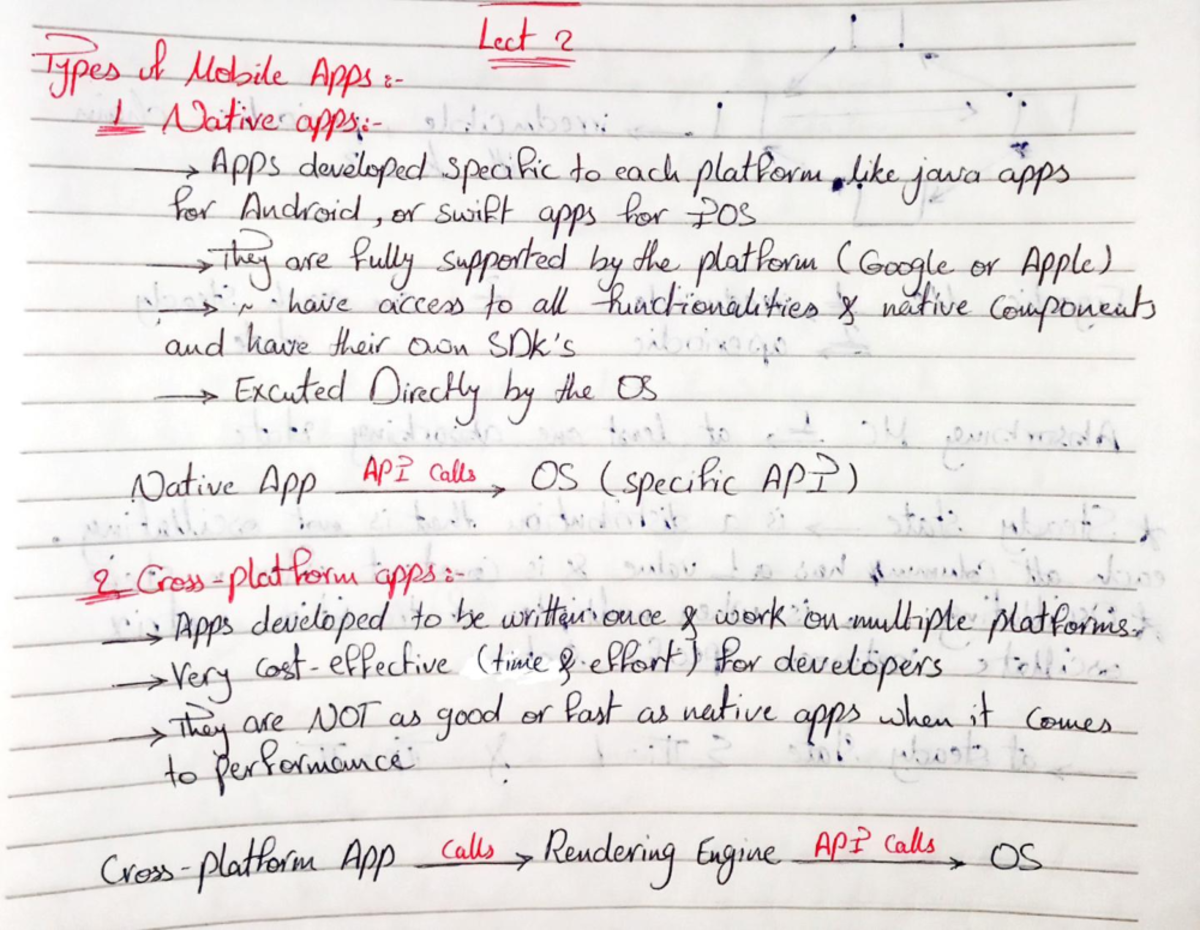 Lect 2
Types of Mobile Apps :-
1 Native apps :-
→ Apps developed specific to each platform, like java apps
for Android, or swift apps for IOS
→ They are fully supported by the platform (Google or Apple)
→ ~ have access to all functionalities & native components
and have their own SDK's
→ Excuted Directly by the OS
Native App API calls → OS (specific API)
2 Cross-platform apps :-
→ Apps developed to be written once & work on multiple platforms.
→ Very cost-effective (time & effort) for developers
→ They are NOT as good or fast as native apps when it comes
to performance
Cross-platform App calls → Rendering Engine API calls → OS